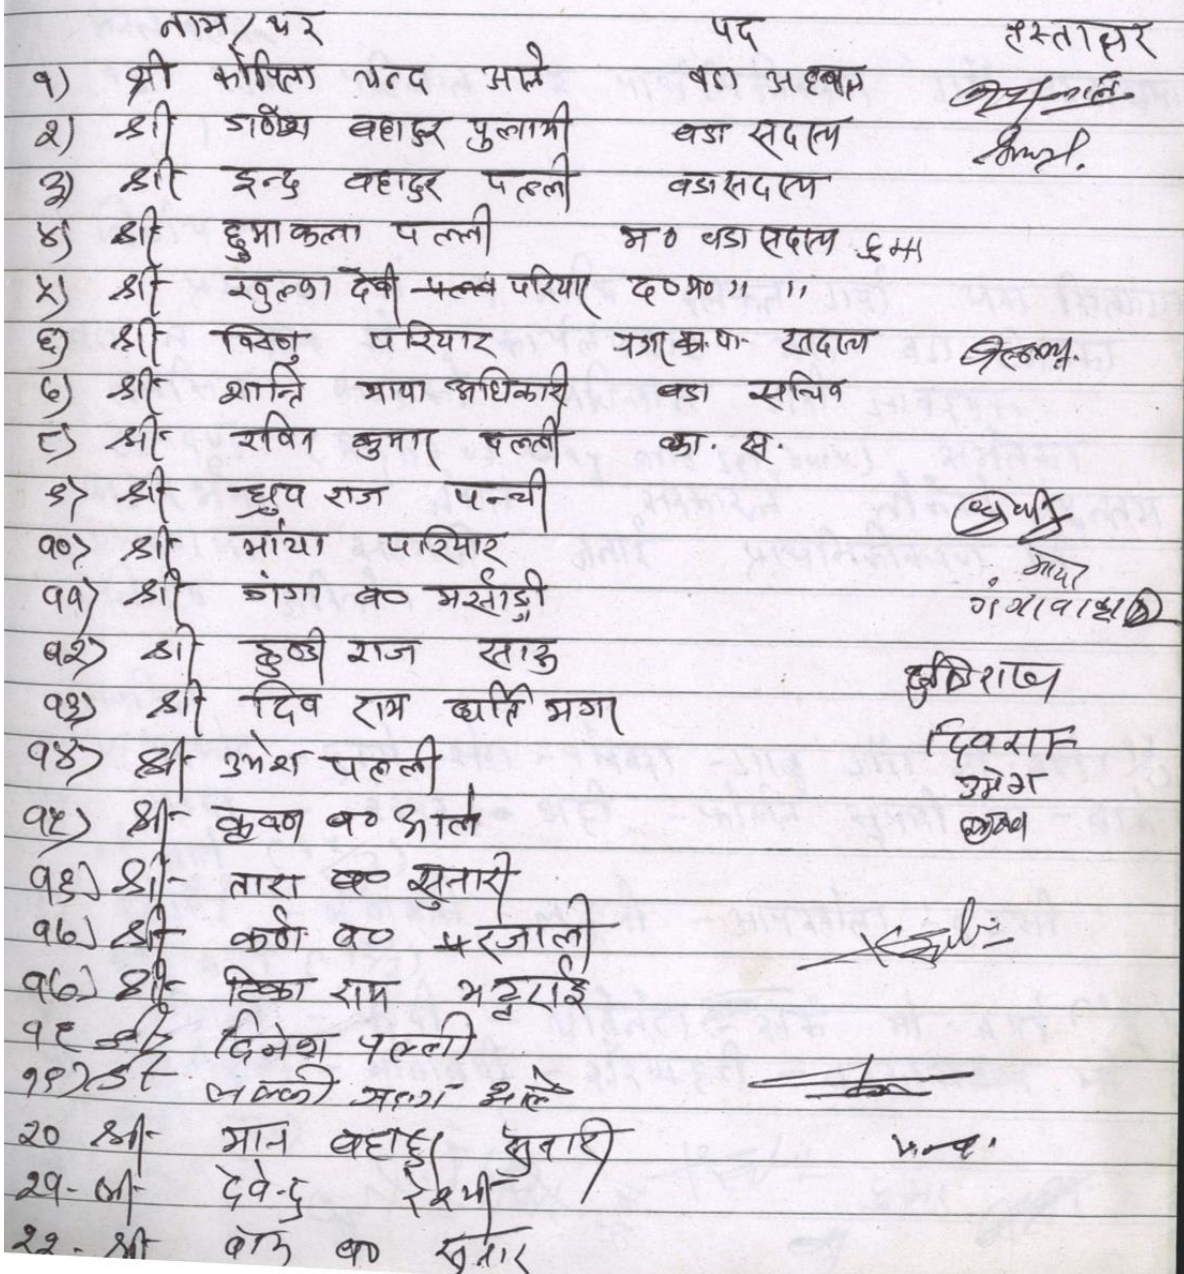 नाम/थर पद हस्ताक्षर
१) श्री कोपिला चन्द आले वडा अध्यक्ष
२) श्री गणेश बहादुर पुलामी वडा सदस्य
३) श्री इन्द्र बहादुर पल्ली वडा सदस्य
४) श्री हुमा कला पल्ली म० वडा सदस्य हुमा
५) श्री खुल्का देवी परियार द०म० " "
६) श्री विष्णु परियार सदस्य
७) श्री शान्ति माया अधिकारी वडा सचिव
८) श्री रविन कुमार पल्ली का. स.
९) श्री ध्रुव राज पन्थी
१०) श्री माया परियार माया
११) श्री गंगा ब० मर्साङ्गी
१२) श्री ढुण्डी राज सारु ढुण्डिराज
१३) श्री दिव राम घर्ति मगर दिवराम
१४) श्री उमेश पल्ली उमेश
१५) श्री कृष्ण ब० आले कृष्ण
१६) श्री तारा ब० सुनारी
१७) श्री कर्ण ब० दरजाली
१७) श्री टिका राम भट्टराई
१८ श्री दिनेश पल्ली
१९) श्री लक्की आले
२० श्री मान बहादुर सुनारी
२१- श्री देवेन्द्र रेश्मी
२२- श्री ब० सुनार